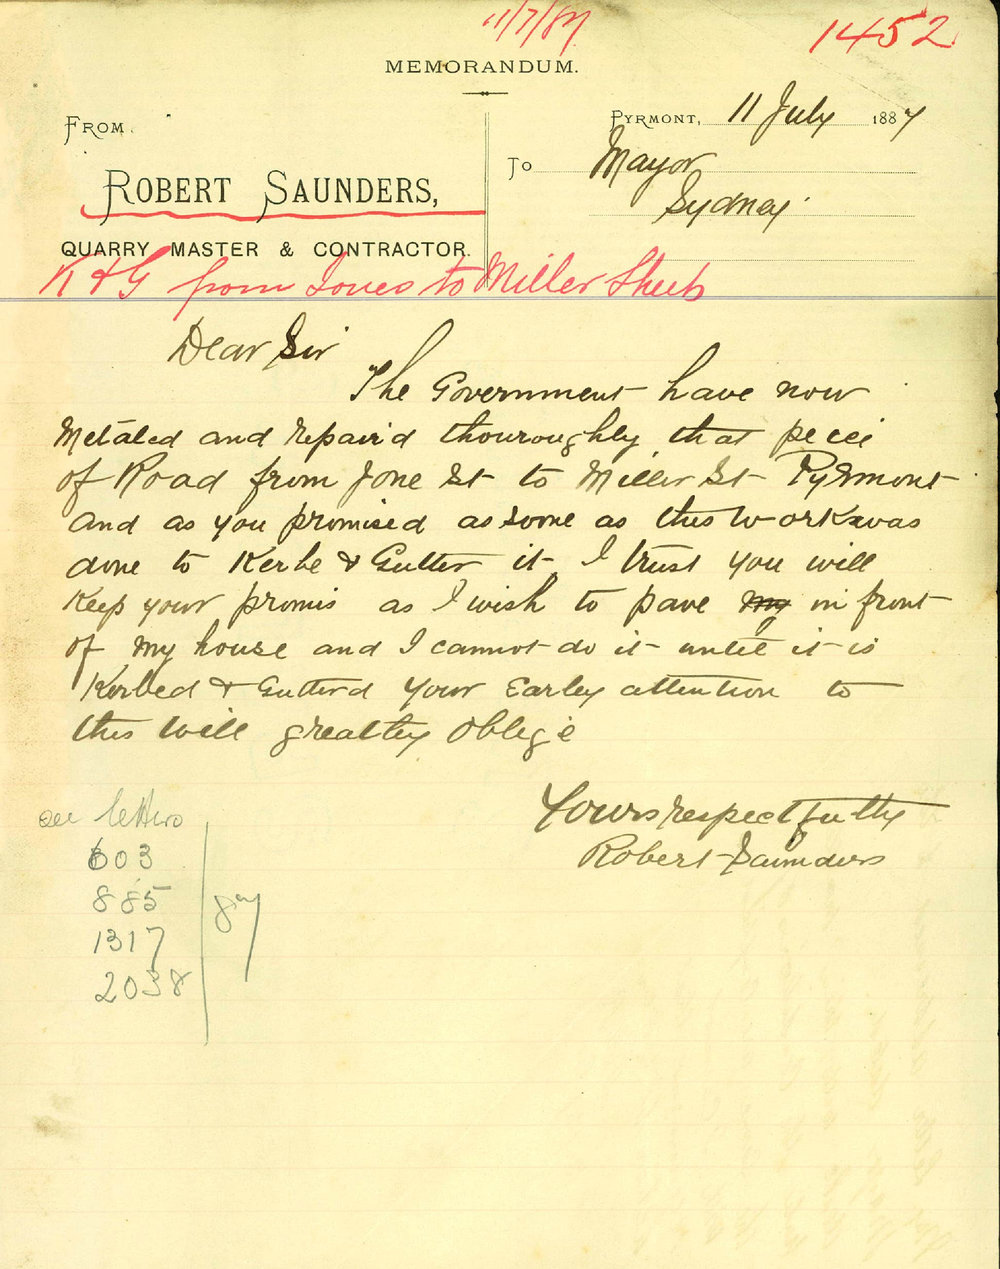 11/7/87
1452
MEMORANDUM.
FROM
ROBERT SAUNDERS,
QUARRY MASTER & CONTRACTOR.
PYRMONT, 11 July 1887
TO Mayor
Sydney
K & G from Jones to Miller Streets
Dear Sir
The Government have now
Metaled and repair'd thouroughly that peice
of Road from Jone St to Miller St Pyrmont
and as you promised as soone as this work was
done to Kerbe & Gutter it I trust you will
Keep your promis as I wish to pave my in front
of my house and I cannot do it until it is
Kerbed & Gutterd Your Earley attention to
this will greatley oblige
Yours respectfully
Robert Saunders
see letters
603
885
1317
2038
87